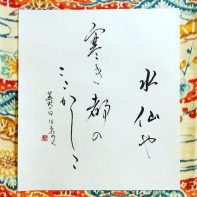 水仙や
寒き都の
ここかしこ
蕪村の句